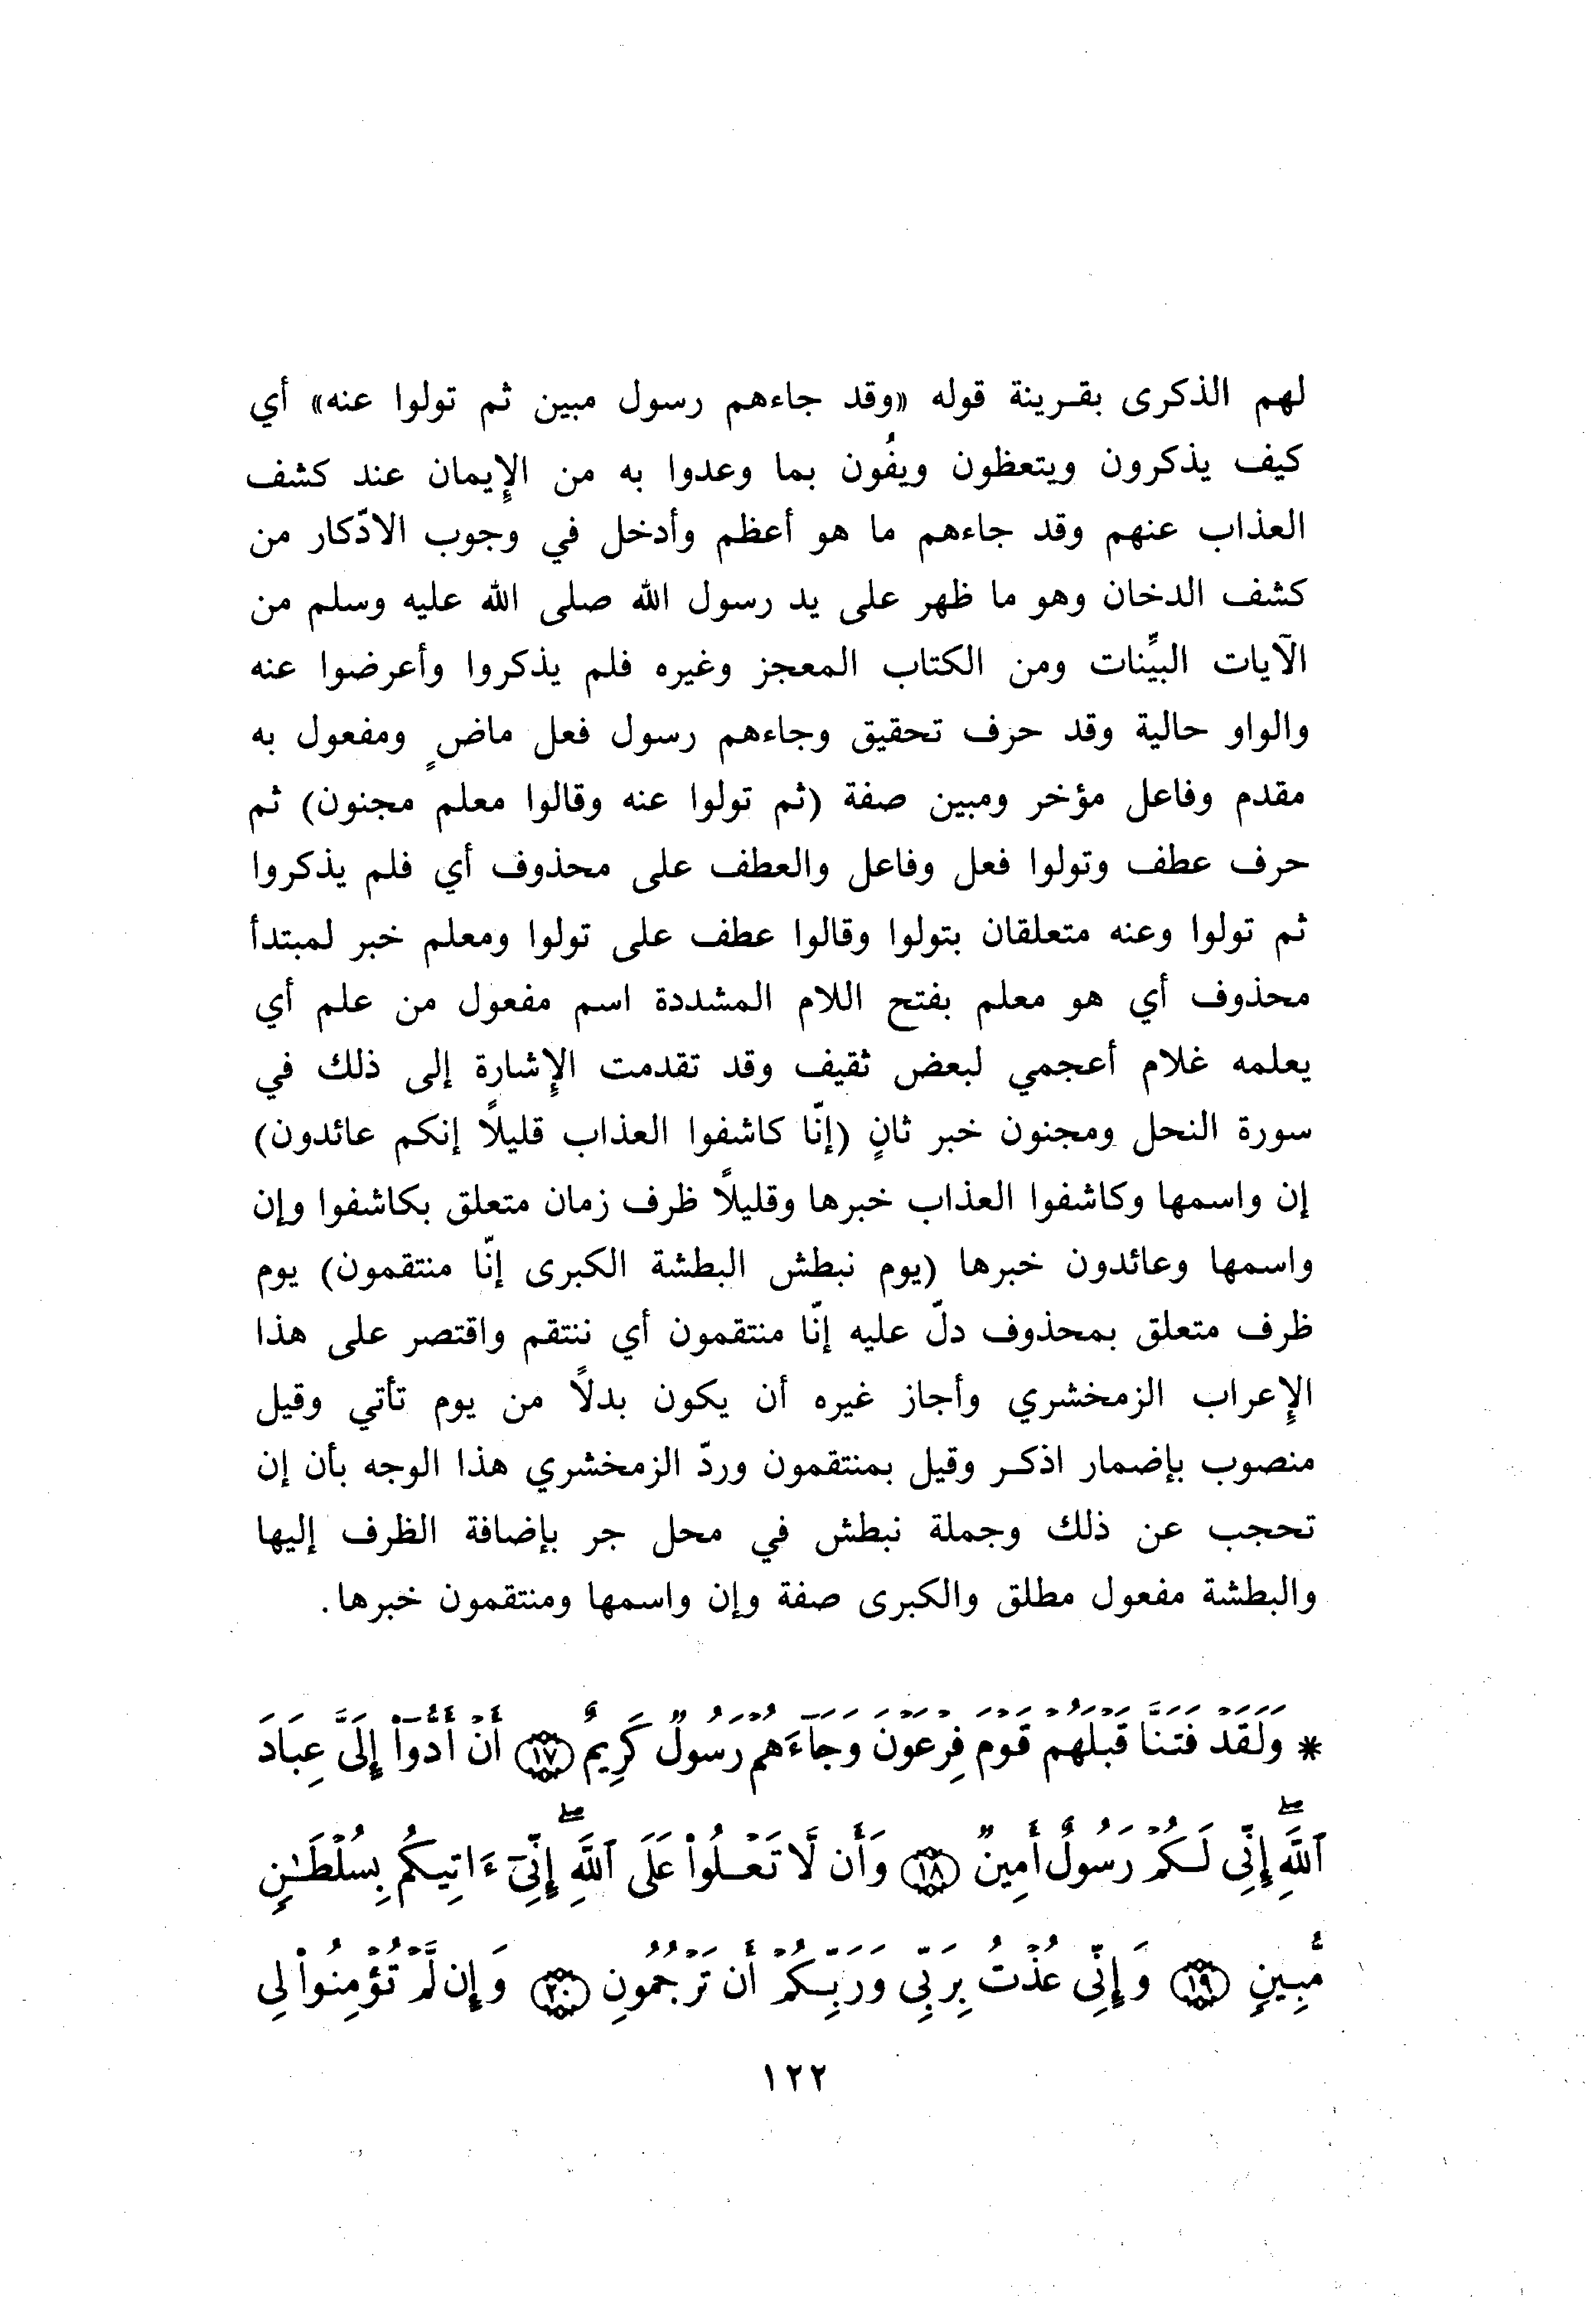 لهم الذكرى بقـرينة قوله «وقد جاءهم رسول مبين ثم تولوا عنه» أي
كيف يذكرون ويتعظون ويفُون بما وعدوا به من الإِيمان عند كشف
العذاب عنهم وقد جاءهم ما هو أعظم وأدخل في وجوب الادّكار من
كشف الدخان وهو ما ظهر على يد رسول الله صلى الله عليه وسلم من
الآيات البيِّنات ومن الكتاب المعجز وغيره فلم يذكروا وأعرضوا عنه
والواو حالية وقد حرف تحقيق وجاءهم رسول فعل ماضٍ ومفعول به
مقدم وفاعل مؤخر ومبين صفة (ثم تولوا عنه وقالوا معلم مجنون) ثم
حرف عطف وتولوا فعل وفاعل والعطف على محذوف أي فلم يذكروا
ثم تولوا وعنه متعلقان بتولوا وقالوا عطف على تولوا ومعلم خبر لمبتدأ
محذوف أي هو معلم بفتح اللام المشددة اسم مفعول من علم أي
يعلمه غلام أعجمي لبعض ثقيف وقد تقدمت الإِشارة إلى ذلك في
سورة النحل ومجنون خبر ثانٍ (إنّا كاشفوا العذاب قليلاً إنكم عائدون)
إن واسمها وكاشفوا العذاب خبرها وقليلاً ظرف زمان متعلق بكاشفوا وإن
واسمها وعائدون خبرها (يوم نبطش البطشة الكبرى إنّا منتقمون) يوم
ظرف متعلق بمحذوف دلّ عليه إنّا منتقمون أي ننتقم واقتصر على هذا
الإِعراب الزمخشري وأجاز غيره أن يكون بدلاً من يوم تأتي وقيل
منصوب بإضمار اذكـر وقيل بمنتقمون وردّ الزمخشري هذا الوجه بأن إن
تحجب عن ذلك وجملة نبطش في محل جر بإضافة الظرف إليها
والبطشة مفعول مطلق والكبرى صفة وإن واسمها ومنتقمون خبرها.
* وَلَقَدْ فَتَنَّا قَبْلَهُمْ قَوْمَ فِرْعَوْنَ وَجَآءَهُمْ رَسُولٌ كَرِيمٌ ١٧ أَنْ أَدُّوٓا۟ إِلَىَّ عِبَادَ
ٱللَّهِ ۖ إِنِّى لَكُمْ رَسُولٌ أَمِينٌ ١٨ وَأَن لَّا تَعْلُوا۟ عَلَى ٱللَّهِ ۖ إِنِّىٓ ءَاتِيكُم بِسُلْطَـٰنٍ
مُّبِينٍ ١٩ وَإِنِّى عُذْتُ بِرَبِّى وَرَبِّكُمْ أَن تَرْجُمُونِ ٢٠ وَإِن لَّمْ تُؤْمِنُوا۟ لِى
١٢٢